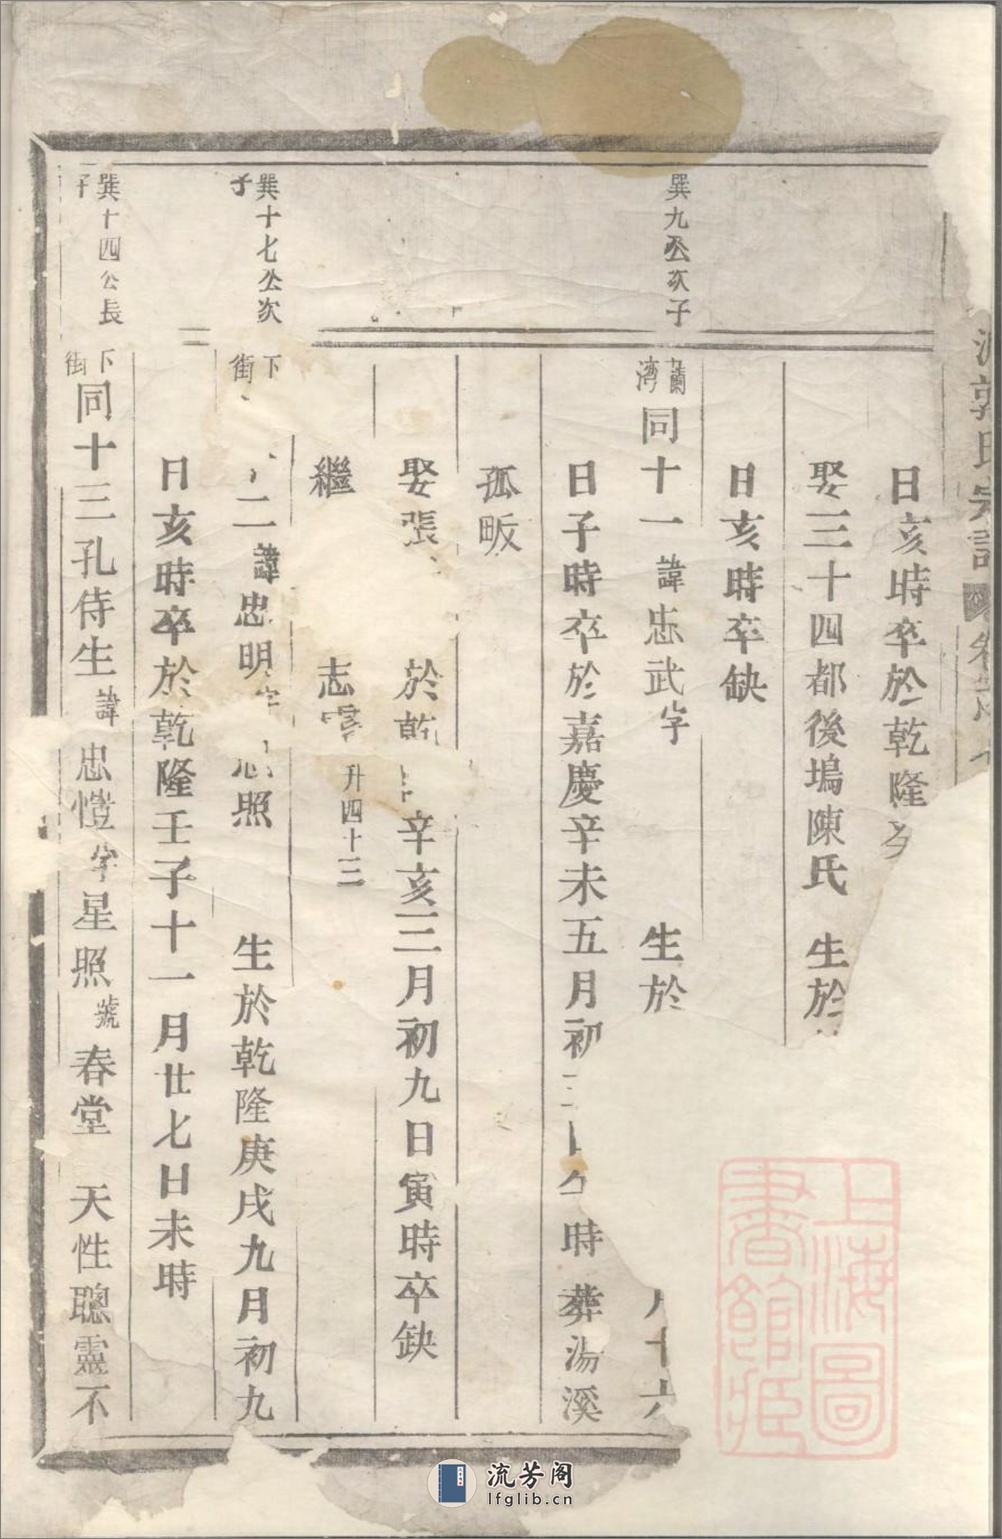 郭氏宗譜
日亥時卒於乾隆
娶三十四都後塢陳氏 生於
日亥時卒缺
巽九公次子
蘭灣 同十一 諱忠武字 生於 月十六
日子時卒於嘉慶辛未五月初三日午時 葬湯溪
孤畈
娶張 於乾 辛亥三月初九日寅時卒缺
繼 志 升四十三
巽十七公次子
下街 二 諱忠明字 照 生於乾隆庚戌九月初九
日亥時卒於乾隆壬子十一月廿七日未時
巽十四公長子
下街 同十三孔侍生 諱忠愷字星照號春堂 天性聰靈不
上海圖書館藏
流芳阁
lfglib.cn